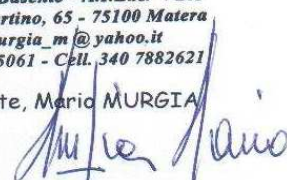 rtino, 65 - 75100 Matera
urgia_m@yahoo.it
5061 - Cell. 340 7882621
te, Mario MURGIA